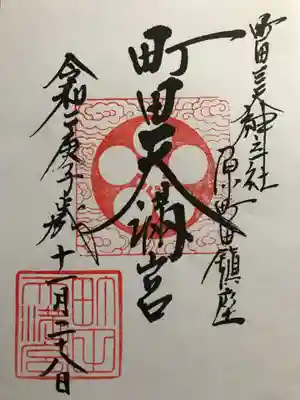 町田三天神三社
原町田鎮座
町田天満宮
令和二庚子歳十一月二十八日